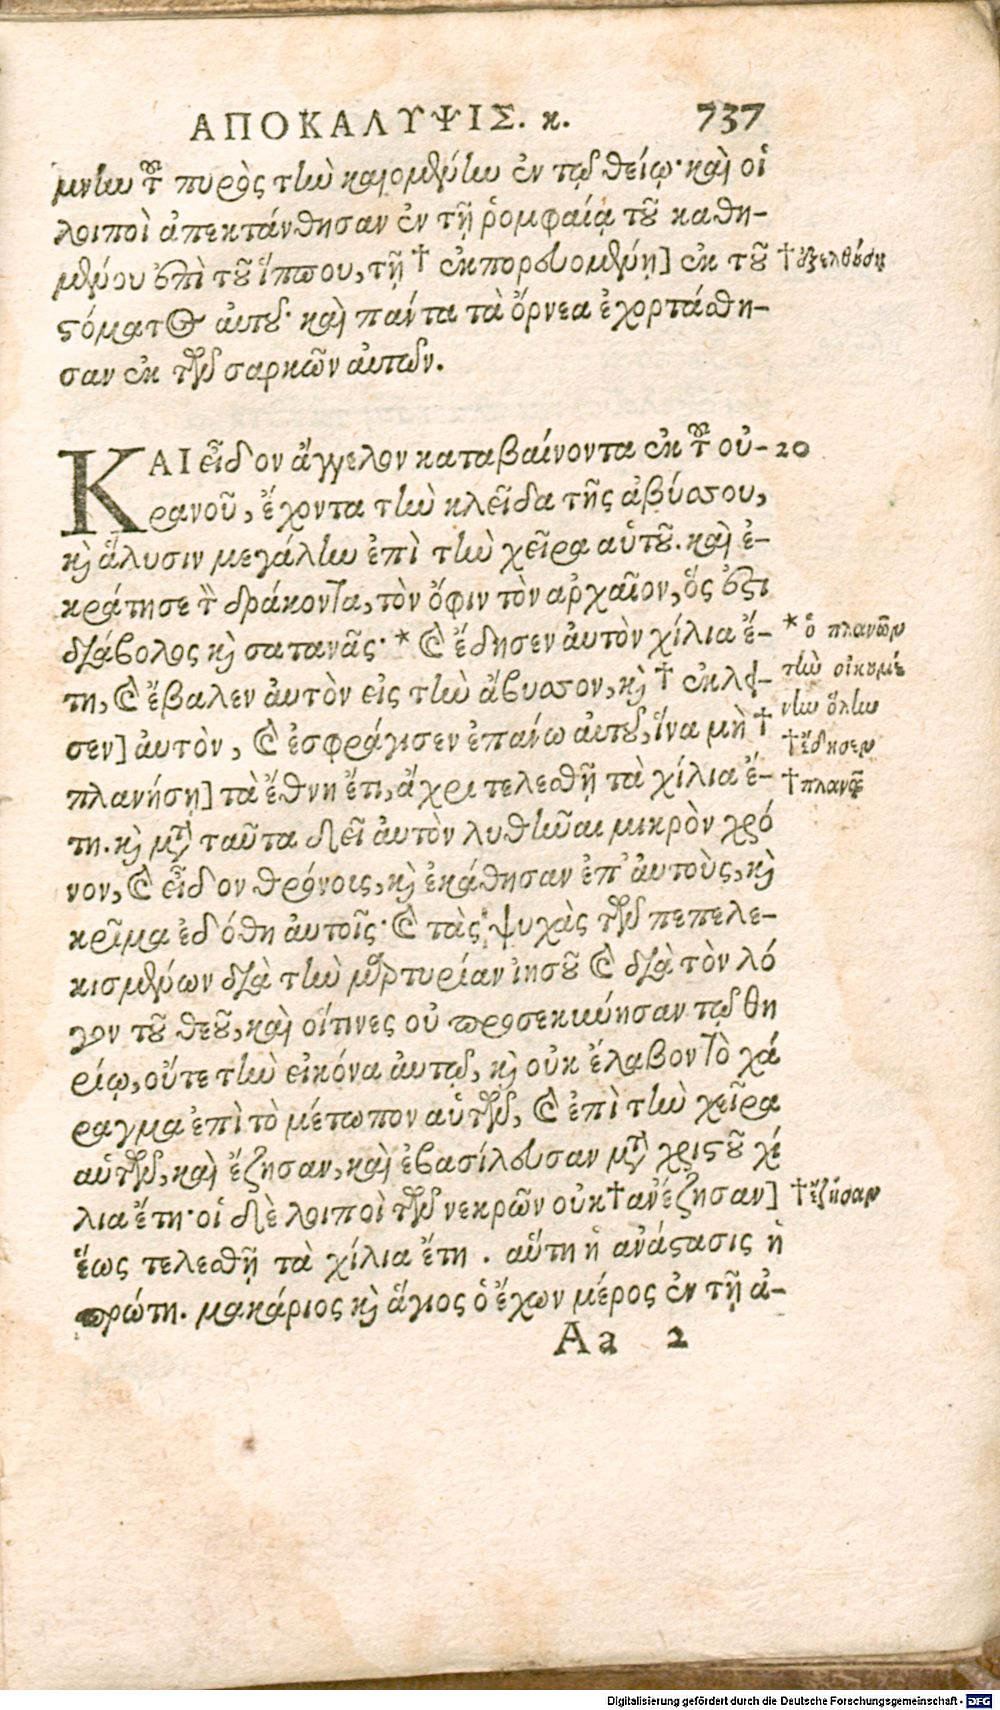 ΑΠΟΚΑΛΥΨΙΣ. κ. 737
μνην τοῦ πυρὸς τὴν καιομένην ἐν τῷ θείῳ· καὶ οἱ
λοιποὶ ἀπεκτάνθησαν ἐν τῇ ῥομφαίᾳ τοῦ καθη-
μένου ἐπὶ τοῦ ἵππου, τῇ † ἐκπορευομένῃ] ἐκ τοῦ
† ἐξελθούσῃ
στόματος αὐτοῦ· καὶ πάντα τὰ ὄρνεα ἐχορτάσθη-
σαν ἐκ τῶν σαρκῶν αὐτῶν.
ΚΑΙ εἶδον ἄγγελον καταβαίνοντα ἐκ τοῦ οὐ- 20
ρανοῦ, ἔχοντα τὴν κλεῖδα τῆς ἀβύσσου,
καὶ ἅλυσιν μεγάλην ἐπὶ τὴν χεῖρα αὑτοῦ. καὶ ἐ-
κράτησε τὸν δράκοντα, τὸν ὄφιν τὸν ἀρχαῖον, ὅς ἐστι
διάβολος καὶ σατανᾶς· * καὶ ἔδησεν αὐτὸν χίλια ἔ-
* ὁ πλανῶν
τη, καὶ ἔβαλεν αὐτὸν εἰς τὴν ἄβυσσον, καὶ † ἐκλει-
τὴν οἰκουμέ
νην ὅλην
σεν] αὐτὸν, καὶ ἐσφράγισεν ἐπάνω αὐτοῦ, ἵνα μὴ †
† ἔδησεν
πλανήσῃ] τὰ ἔθνη ἔτι, ἄχρι τελεσθῇ τὰ χίλια ἔ-
† πλανᾷ
τη. καὶ μετὰ ταῦτα δεῖ αὐτὸν λυθῆναι μικρὸν χρό
νον, καὶ εἶδον θρόνοις, καὶ ἐκάθησαν ἐπ' αὐτοὺς, καὶ
κρῖμα ἐδόθη αὐτοῖς· καὶ τὰς ψυχὰς τῶν πεπελε-
κισμένων διὰ τὴν μαρτυρίαν ἰησοῦ καὶ διὰ τὸν λό
γον τοῦ θεοῦ, καὶ οἵτινες οὐ προσεκύνησαν τῷ θη
ρίῳ, οὔτε τὴν εἰκόνα αὐτῷ, καὶ οὐκ ἔλαβον τὸ χά
ραγμα ἐπὶ τὸ μέτωπον αὑτῶν, καὶ ἐπὶ τὴν χεῖρα
αὑτῶν, καὶ ἔζησαν, καὶ ἐβασίλευσαν μετὰ χριστοῦ χί
λια ἔτη· οἱ δὲ λοιποὶ τῶν νεκρῶν οὐκ † ἀνέζησαν]
† ἔζησαν
ἕως τελεσθῇ τὰ χίλια ἔτη . αὕτη ἡ ἀνάστασις ἡ
πρώτη. μακάριος καὶ ἅγιος ὁ ἔχων μέρος ἐν τῇ ἀ-
Aa 2
Digitalisierung gefördert durch die Deutsche Forschungsgemeinschaft - DFG